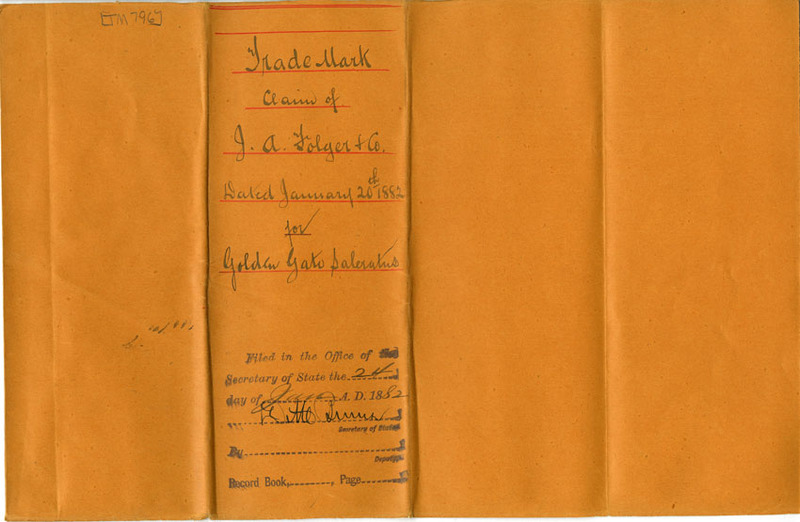 [TM 796]
Trade Mark
Claim of
J. A. Folger & Co.
Dated January 20th 1882
for
Golden Gate Saleratus
Filed in the Office of the
Secretary of State the 24
day of Jany A. D. 1882
Secretary of State
By
Deputy
Record Book, , Page